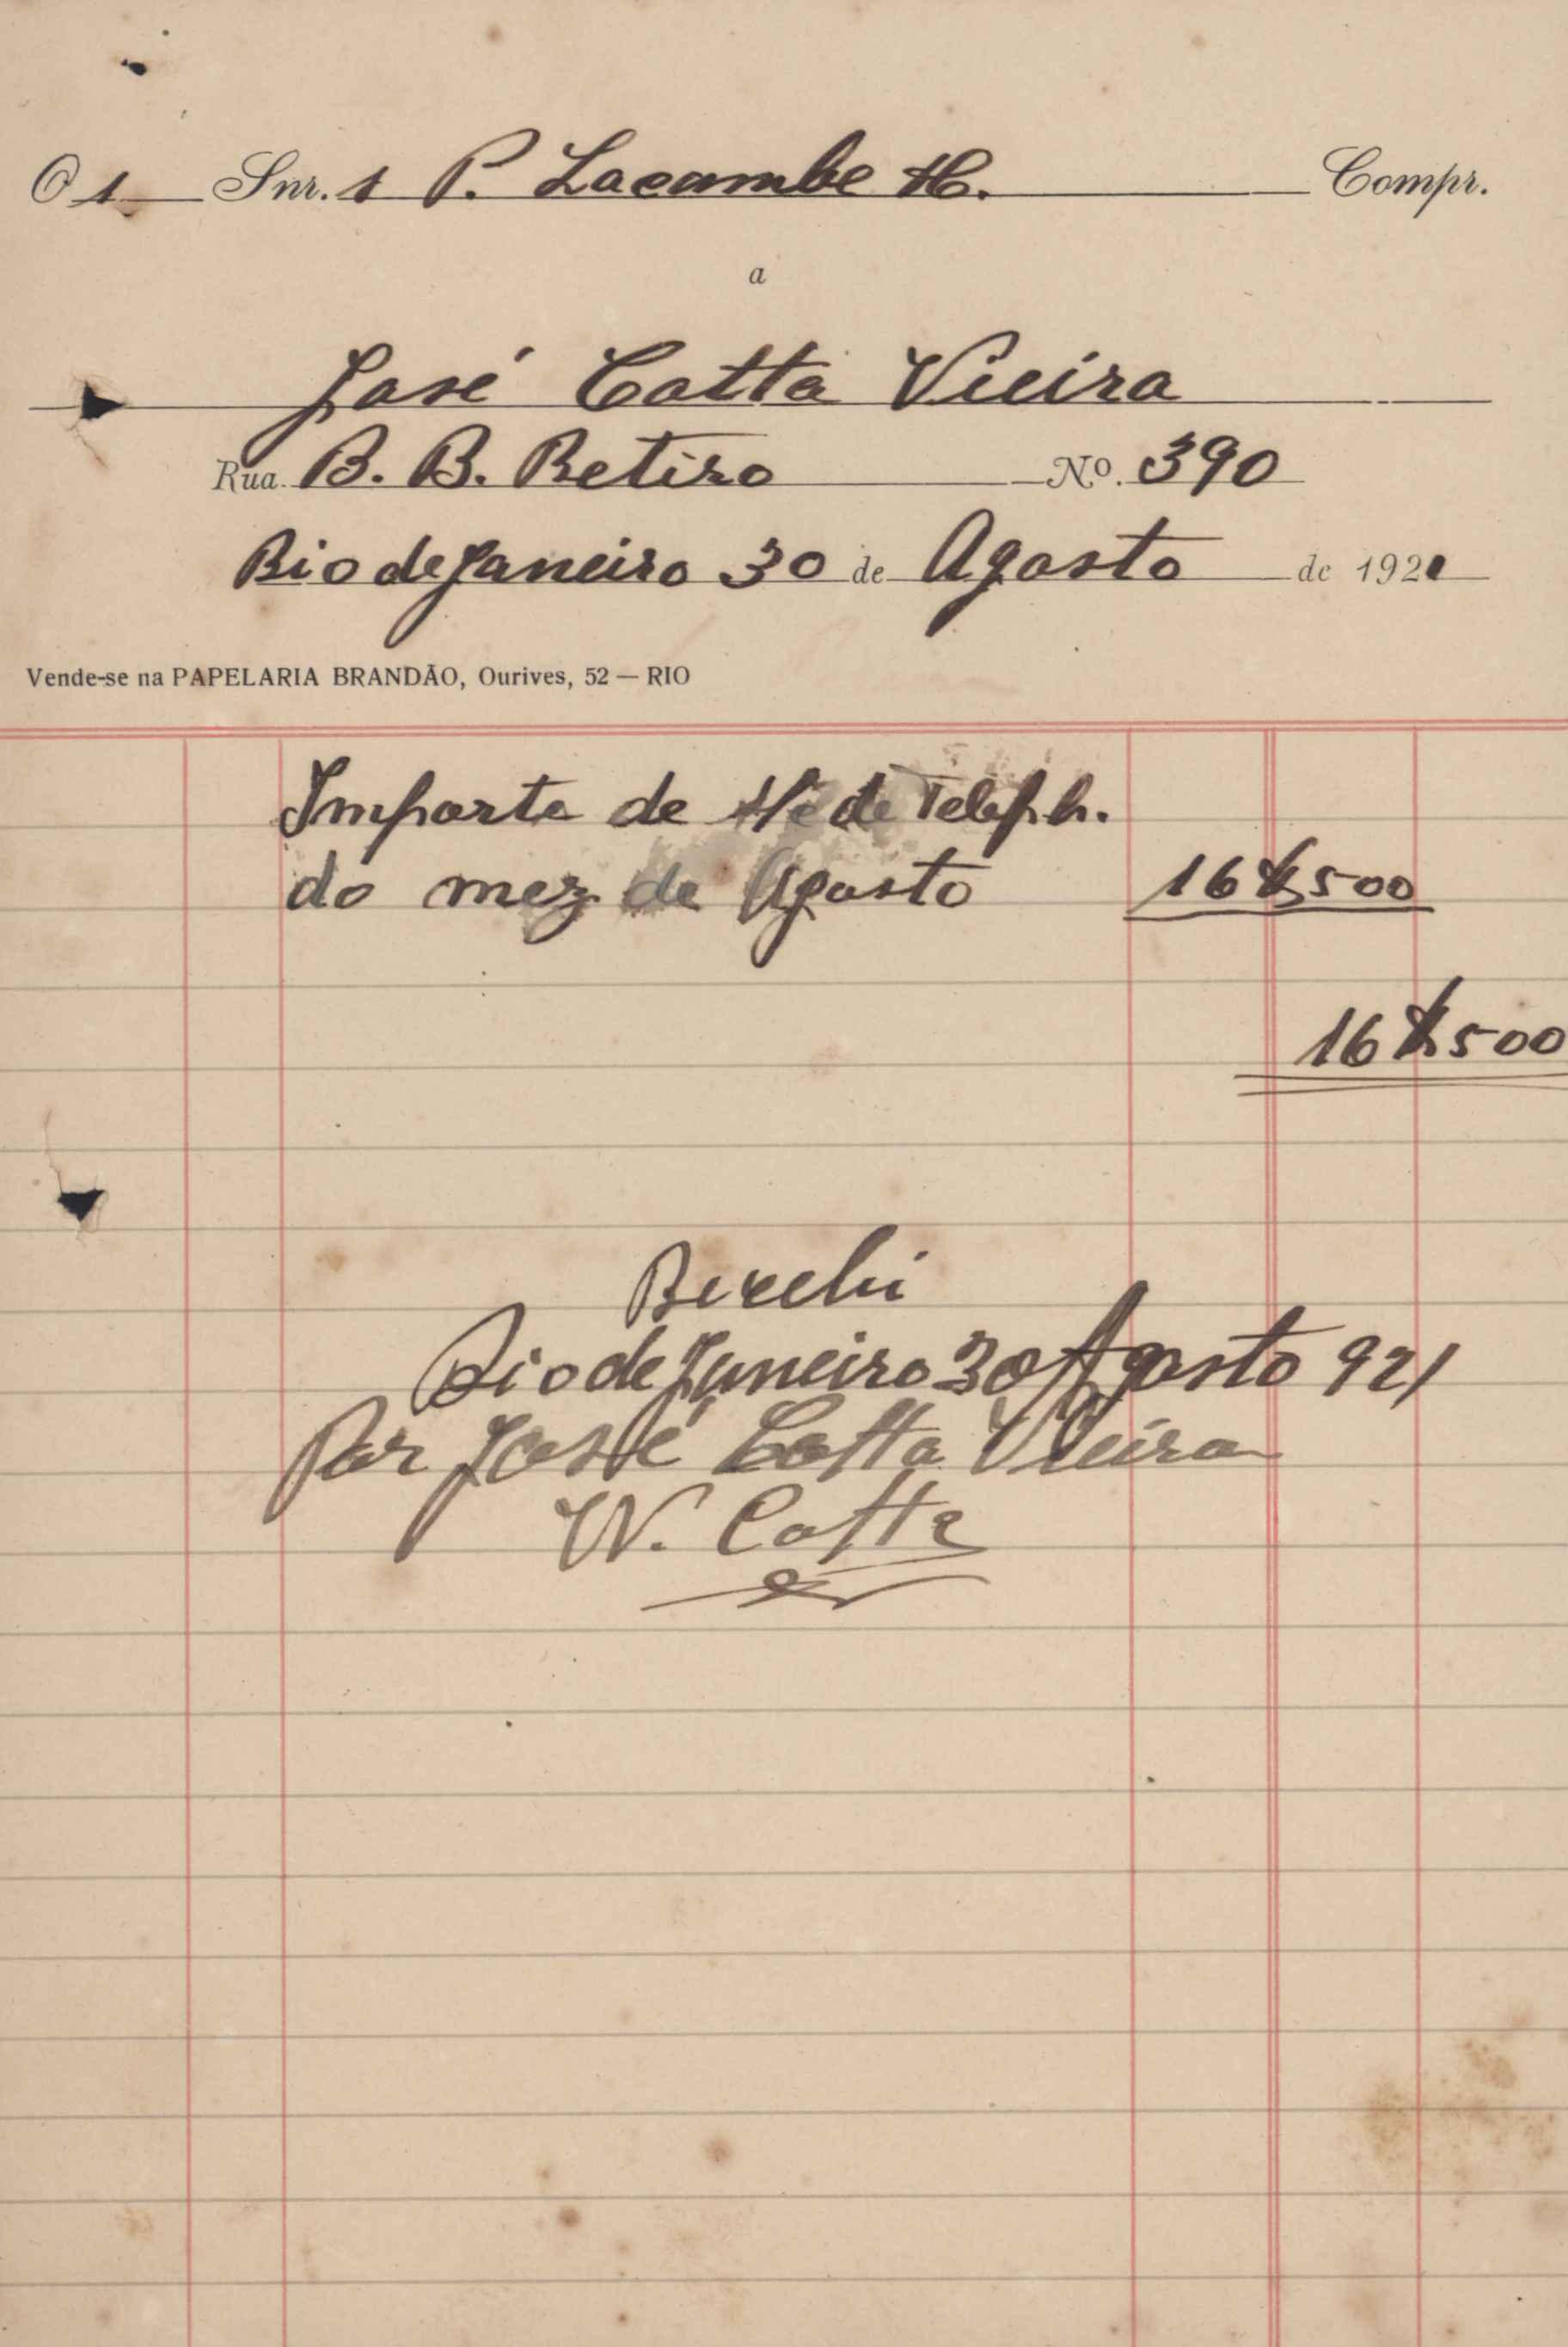 Os Snr.s P. Lacombe & C. Compr.
a
José Cotta Vieira
Rua B. B. Retiro Nº. 390
Rio de Janeiro 30 de Agosto de 1921
Vende-se na PAPELARIA BRANDÃO, Ourives, 52 — RIO
Importe de de Teleph.
do mez de Agosto 16$500
16$500
Recebi
Rio de Janeiro 30 Agosto 921
Por José Cotta Vieira
W. Cotta